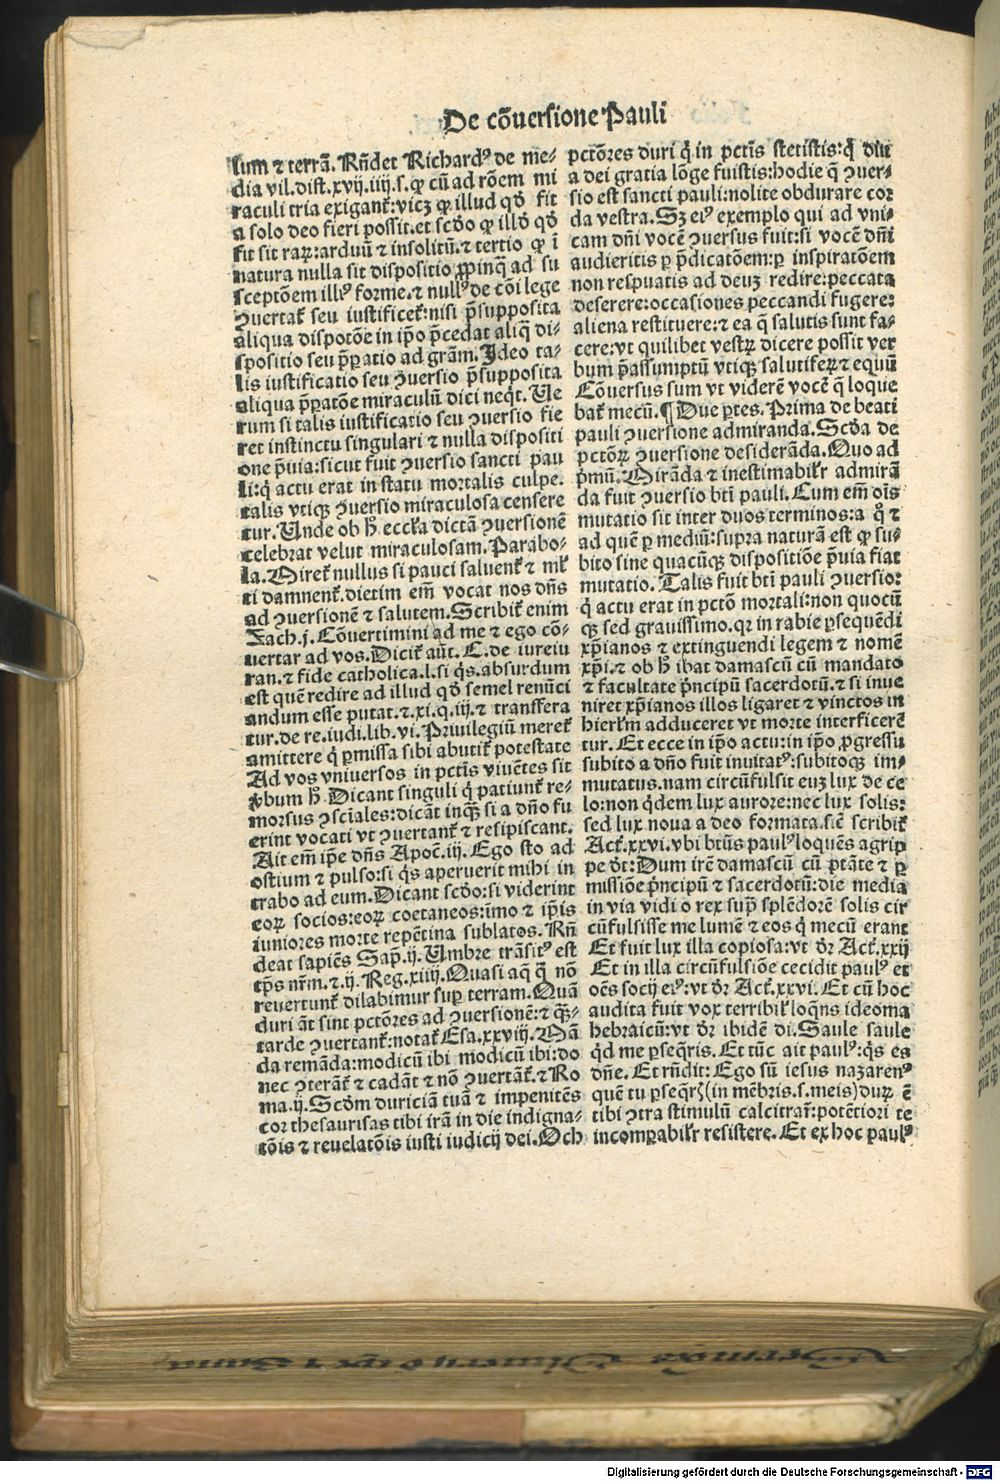 De cōuersione Pauli
lum ⁊ terrā. Rn̄det Richardꝰ de me-
dia vil. dist. xvij. iiij. s. ꝙ cū ad rōem mi
raculi tria exigant̄: vicꝫ ꝙ illud qd̄ fit
a solo deo fieri possit. et scd̄o ꝙ illd̄ qd̄
fit sit raꝝ: arduū ⁊ insolitū. ⁊ tertio ꝙ ī
natura nulla sit dispositio ꝓpinq̄ ad su
sceptōem illiꝰ forme. ⁊ nullꝰ de cōi lege
ꝯuertat̄ seu iustificet̄: nisi p̄supposita
aliqua dispotōe in ip̄o p̄cedat aliq̄ di-
spositio seu p̄ꝑatio ad grām. Ideo ta-
lis iustificatio seu ꝯuersio p̄supposita
aliqua p̄ꝑatōe miraculū dici neqt̄. Ue
rum si talis iustificatio seu ꝯuersio fie
ret instinctu singulari ⁊ nulla dispositi
one p̄uia: sicut fuit ꝯuersio sancti pau
li: q̄ actu erat in statu mortalis culpe.
talis vtiqꝫ ꝯuersio miraculosa censere
tur. Unde ob h̄ eccl̄ia dictā ꝯuersionē
celebrat velut miraculosam. Parabo-
la. Miret̄ nullus si pauci saluent̄ ⁊ ml̄
ti damnent̄. dietim em̄ vocat nos dn̄s
ad ꝯuersionē ⁊ salutem. Scribit̄ enim
Zach. j. Cōuertimini ad me ⁊ ego cō-
uertar ad vos. Dicit̄ aūt. C. de iureiu
ran. ⁊ fide catholica. l. si q̄s. absurdum
est quē redire ad illud qd̄ semel renūci
andum esse putat. ⁊. xi. q. iij. ⁊ transfera
tur. de re. iudi. lib. vi. Priuilegiū meret̄
amittere q̄ ꝑmissa sibi abutit̄ potestate
Ad vos vniuersos in pctīs viuētes sit
v̄bum h̄. Dicant singuli q̄ patiunt̄ re-
morsus ꝯscīales: dicāt inqꝫ si a dn̄o fu
erint vocati vt ꝯuertant̄ ⁊ resipiscant.
Ait em̄ ip̄e dn̄s Apoc̄. iij. Ego sto ad
ostium ⁊ pulso: si q̄s aperuerit mihi in
trabo ad eum. Dicant scd̄o: si viderint
eoꝝ socios: eoꝝ coetaneos: imo ⁊ ip̄is
iuniores morte repētina sublatos. Rn̄
deat sapiēs Sap̄. ij. Umbre trāsitꝰ est
tp̄s nr̄m. ⁊. ij. Reg. xiiij. Quasi aq̄ q̄ nō
reuertunt̄ dilabimur suꝑ terram. Quā
duri āt sint pctōres ad ꝯuersionē: ⁊ qꝫ-
tarde ꝯuertant̄: notat̄ Esa. xxviij. Mā
da remāda: modicū ibi modicū ibi: do
nec ꝯterāt̄ ⁊ cadāt ⁊ nō ꝯuertāt̄. ⁊ Ro
ma. ij. Scd̄m duriciā tuā ⁊ impenitēs
cor thesaurisas tibi irā in die indigna-
tōis ⁊ reuelatōis iusti iudicij dei. Och
pctōres duri q̄ in pctīs stetistis: q̄ diu
a dei gratia lōge fuistis: hodie q̄ ꝯuer-
sio est sancti pauli: nolite obdurare cor
da vestra. Sꝫ eiꝰ exemplo qui ad vni-
cam dn̄i vocē ꝯuersus fuit: si vocē dn̄i
audieritis ꝑ p̄dicatōem: ꝑ inspiratōem
non respuatis ad deuꝫ redire: peccata
deserere: occasiones peccandi fugere:
aliena restituere: ⁊ ea q̄ salutis sunt fa-
cere: vt quilibet vestꝝ dicere possit ver
bum p̄assumptū vtiqꝫ salutifeꝝ ⁊ equū
Cōuersus sum vt viderē vocē q̄ loque
bat̄ mecū. ¶ Due ꝑtes. Prima de beati
pauli ꝯuersione admiranda. Scd̄a de
pctōꝝ ꝯuersione desiderāda. Quo ad
p̄mū. Mirāda ⁊ inestimabilr̄ admirā
da fuit ꝯuersio bt̄i pauli. Cum em̄ oīs
mutatio sit inter duos terminos: a q̊ ⁊
ad quē ꝑ mediū: supra naturā est ꝙ su-
bito sine quacūqꝫ dispositiōe p̄uia fiat
mutatio. Talis fuit bt̄i pauli ꝯuersio:
q̄ actu erat in pctō mortali: non quocū
qꝫ sed grauissimo. qꝛ in rabie ꝑsequēdi
xp̄ianos ⁊ extinguendi legem ⁊ nomē
xp̄i. ⁊ ob h̄ ibat damascū cū mandato
⁊ facultate p̄ncipū sacerdotū. ⁊ si inue
niret xp̄ianos illos ligaret ⁊ vinctos in
hierl̄m adduceret vt morte interficerē
tur. Et ecce in ip̄o actu: in ip̄o ꝓgressu
subito a dn̄o fuit inuitatꝰ: subitoqꝫ im-
mutatus. nam circūfulsit euꝫ lux de ce
lo: non q̄dem lux aurore: nec lux solis:
sed lux noua a deo formata. sic̄ scribit̄
Act̄. xxvi. vbi bt̄us paulꝰ loquēs agrip
pe dt̄: Dum irē damascū cū ptāte ⁊ ꝑ
missiōe p̄ncipū ⁊ sacerdotū: die media
in via vidi o rex sup̄ splēdorē solis cir
cūfulsisse me lumē ⁊ eos q̄ mecū erant
Et fuit lux illa copiosa: vt dr̄ Act̄. xxij
Et in illa circūfulsiōe cecidit paulꝰ et
oēs socij eiꝰ: vt dr̄ Act̄. xxvi. Et cū hoc
audita fuit vox terribilr̄ loqn̄s ideoma
hebraicū: vt dr̄ ibidē di. Saule saule
qd̄ me ꝑseq̄ris. Et tūc ait paulꝰ: q̄s es
dn̄e. Et rn̄dit: Ego sū iesus nazarenꝰ
quē tu ꝑseqr̄ꝭ (in mēbris. s. meis) duꝝ ē
tibi ꝯtra stimulū calcitrar̄: potētiori te
incomꝑabilr̄ resistere. Et ex hoc paulꝰ
Digitalisierung gefördert durch die Deutsche Forschungsgemeinschaft - DFG